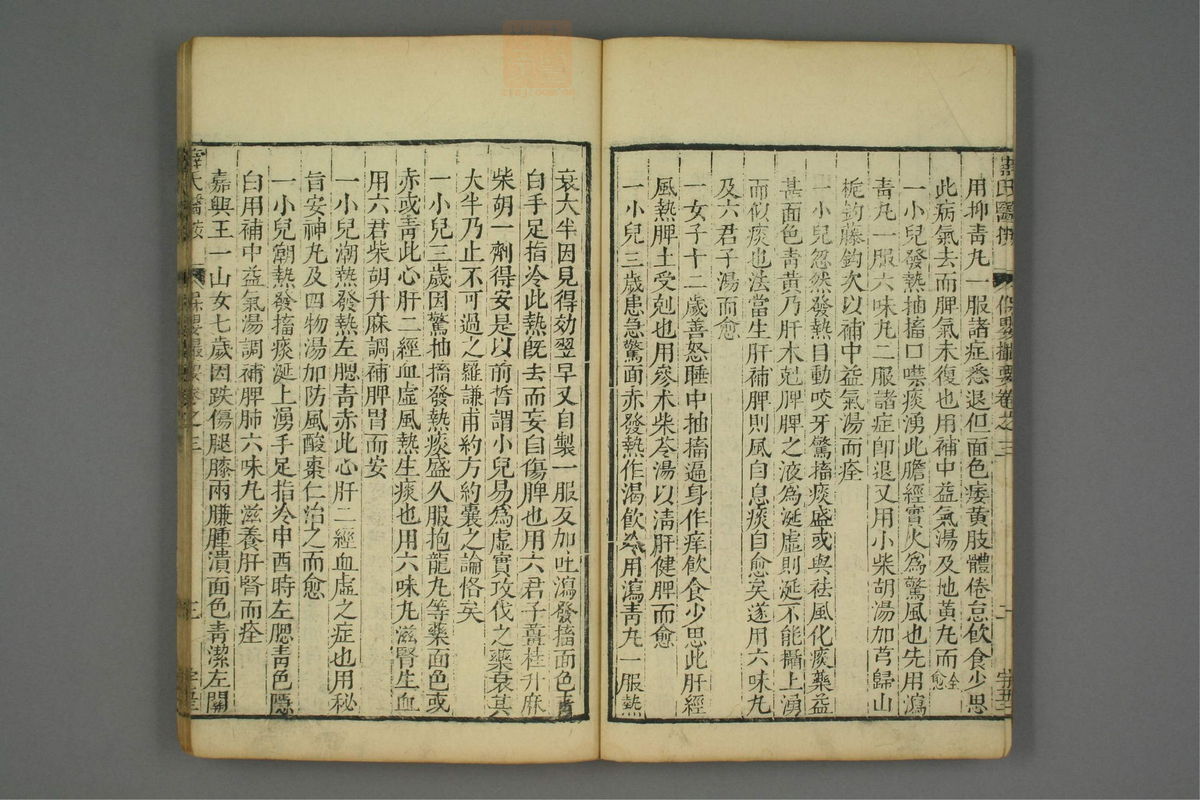 用抑青丸一服諸症悉退但面色痿黄肢體倦怠飲食少思
此病氣去而脾氣未復也用補中益氣湯及地黄丸而全愈
一小兒發熱抽搐口噤痰湧此膽經實火為驚風也先用瀉
青丸一服六味丸二服諸症卽退又用小柴胡湯加芎歸山
梔釣藤鈎次以補中益氣湯而痊
一小兒忽然發熱目動咬牙驚搐痰盛或與祛風化痰藥益
甚面色青黄乃肝木尅脾脾之液為涎虛則涎不能攝上湧
而似痰也法當生肝補脾則風自息痰自愈矣遂用六味丸
及六君子湯而愈
一女子十二歲善怒睡中抽搐遍身作痒飲食少思此肝經
風熱脾土受尅也用參术柴苓湯以清肝健脾而愈
一小兒三歲患急驚面赤發熱作渴飲冷用瀉青丸一服熱
衰大半因見得効翌早又自製一服反加吐瀉發搐面色青
白手足指冷此熱旣去而妄自傷脾也用六君子薑桂升麻
柴胡一劑得安是以前哲謂小兒易為虛實攻伐之藥衰其
大半乃止不可過之羅謙甫約方約囊之論恪矣
一小兒三歲因驚抽搐發熱痰盛久服抱龍丸等藥面色或
赤或青此心肝二經血虛風熱生痰也用六味丸滋腎生血
用六君柴胡升麻調補脾胃而安
一小兒潮熱發熱左腮青赤此心肝二經血虛之症也用秘
旨安神丸及四物湯加防風酸棗仁治之而愈
一小兒潮熱發搐痰涎上湧手足指冷申酉時左腮青色隱
白用補中益氣湯調補脾肺六味丸滋養肝腎而痊
嘉興王一山女七歲因跌傷腿膝兩臁腫潰面色青潔左關